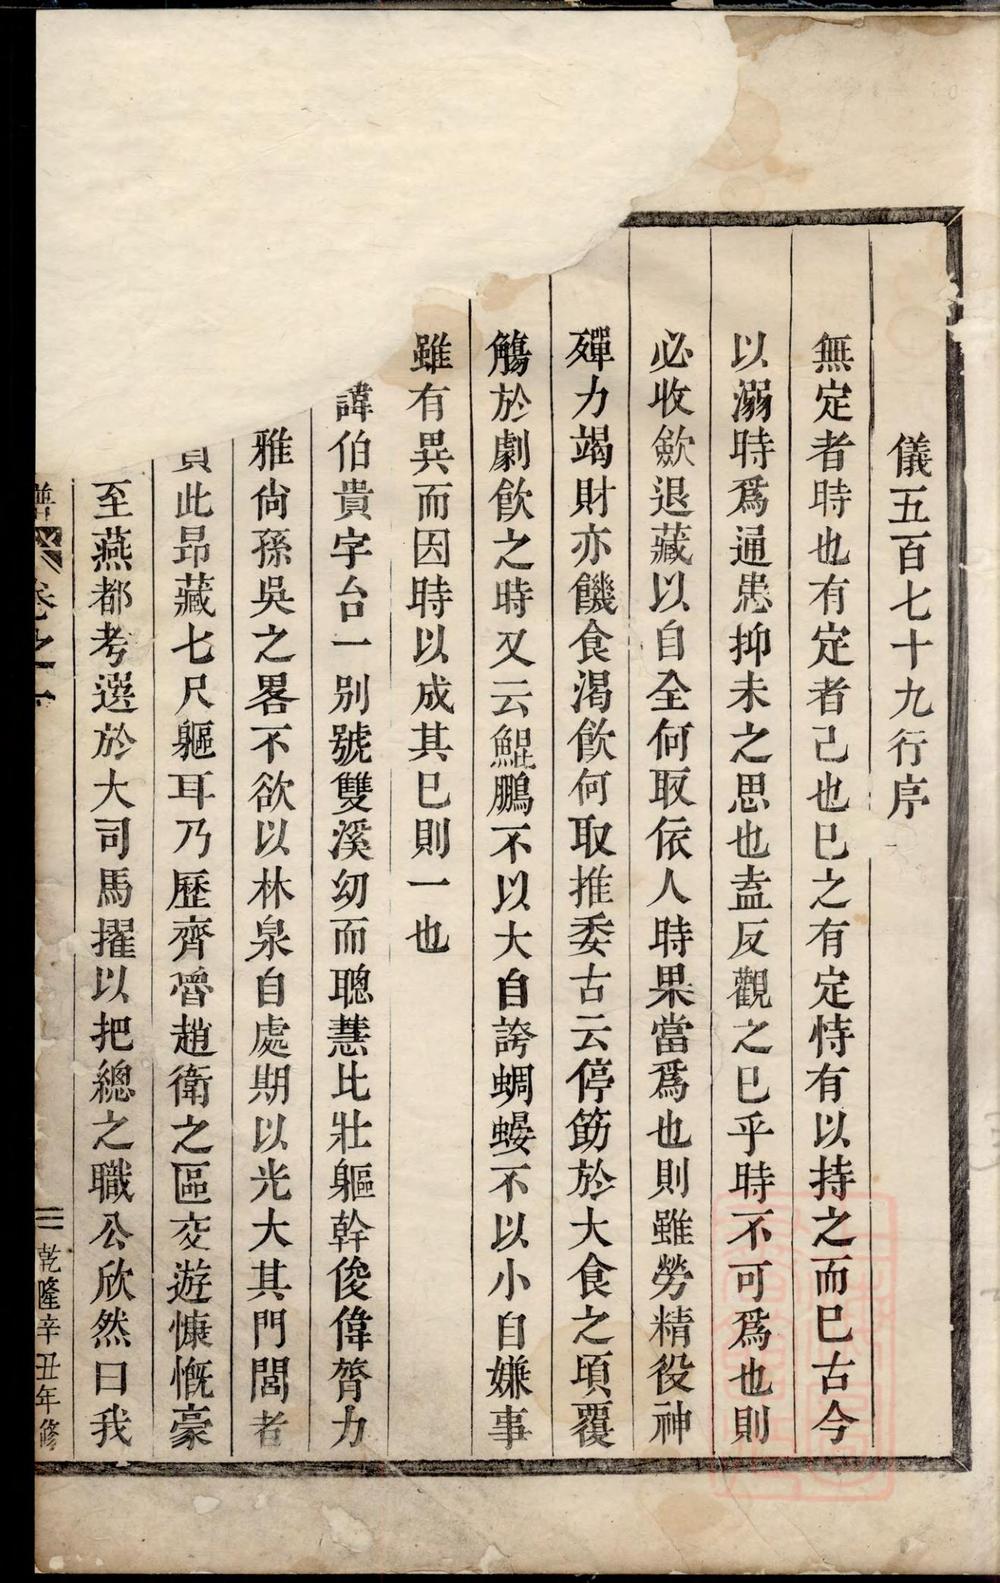 儀五百七十九行序
無定者時也有定者己也已之有定恃有以持之而已古今
以溺時爲通患抑未之思也盍反觀之已乎時不可爲也則
必收歛退藏以自全何取依人時果當爲也則雖勞精役神
殫力竭財亦饑食渴飲何取推委古云停筯於大食之頃覆
觴於劇飲之時又云鯤鵬不以大自誇蜩蝘不以小自嫌事
雖有異而因時以成其已則一也
諱伯貴字台一別號雙溪幼而聰慧比壯軀幹俊偉膂力
雅尙孫吳之畧不欲以林泉自處期以光大其門閭者
負此昻藏七尺軀耳乃歷齊魯趙衛之區交遊慷慨豪
至燕都考選於大司馬擢以把總之職公欣然曰我
譜 卷之一 三 乾隆辛丑年修